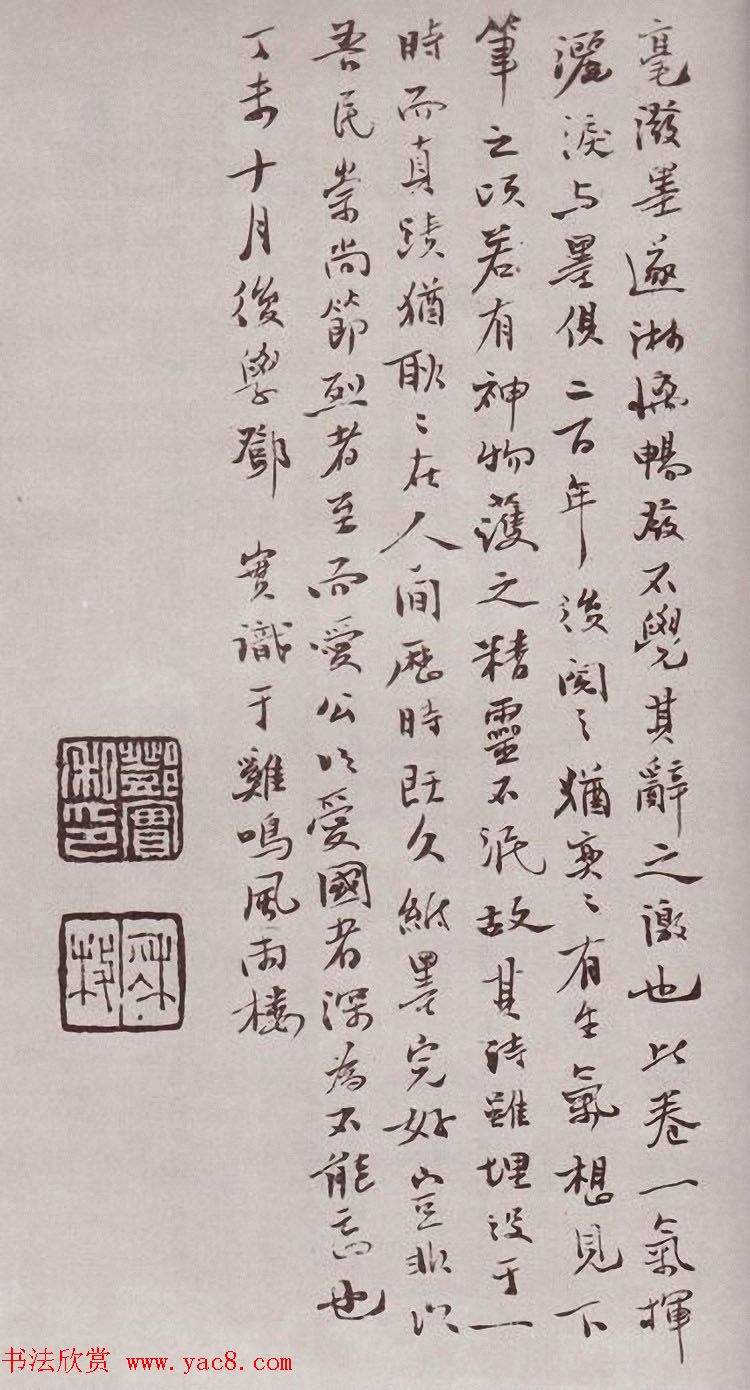 毫潑墨遂淋慯暢發不覺其辭之激也此卷一氣揮
灑淚与墨俱二百年後閱之猶奕〻有生氣想見下
筆之頃若有神物護之精靈不泯故其詩雖埋没于一
時而真蹟猶耿〻在人間歷時既久紙墨完好豈非以
吾民崇尚節烈者至而愛公以愛國者深為不能忘也
丁未十月後學鄧 實識于雞鳴風雨樓
鄧實
秋枚
书法欣赏 www.yac8.com